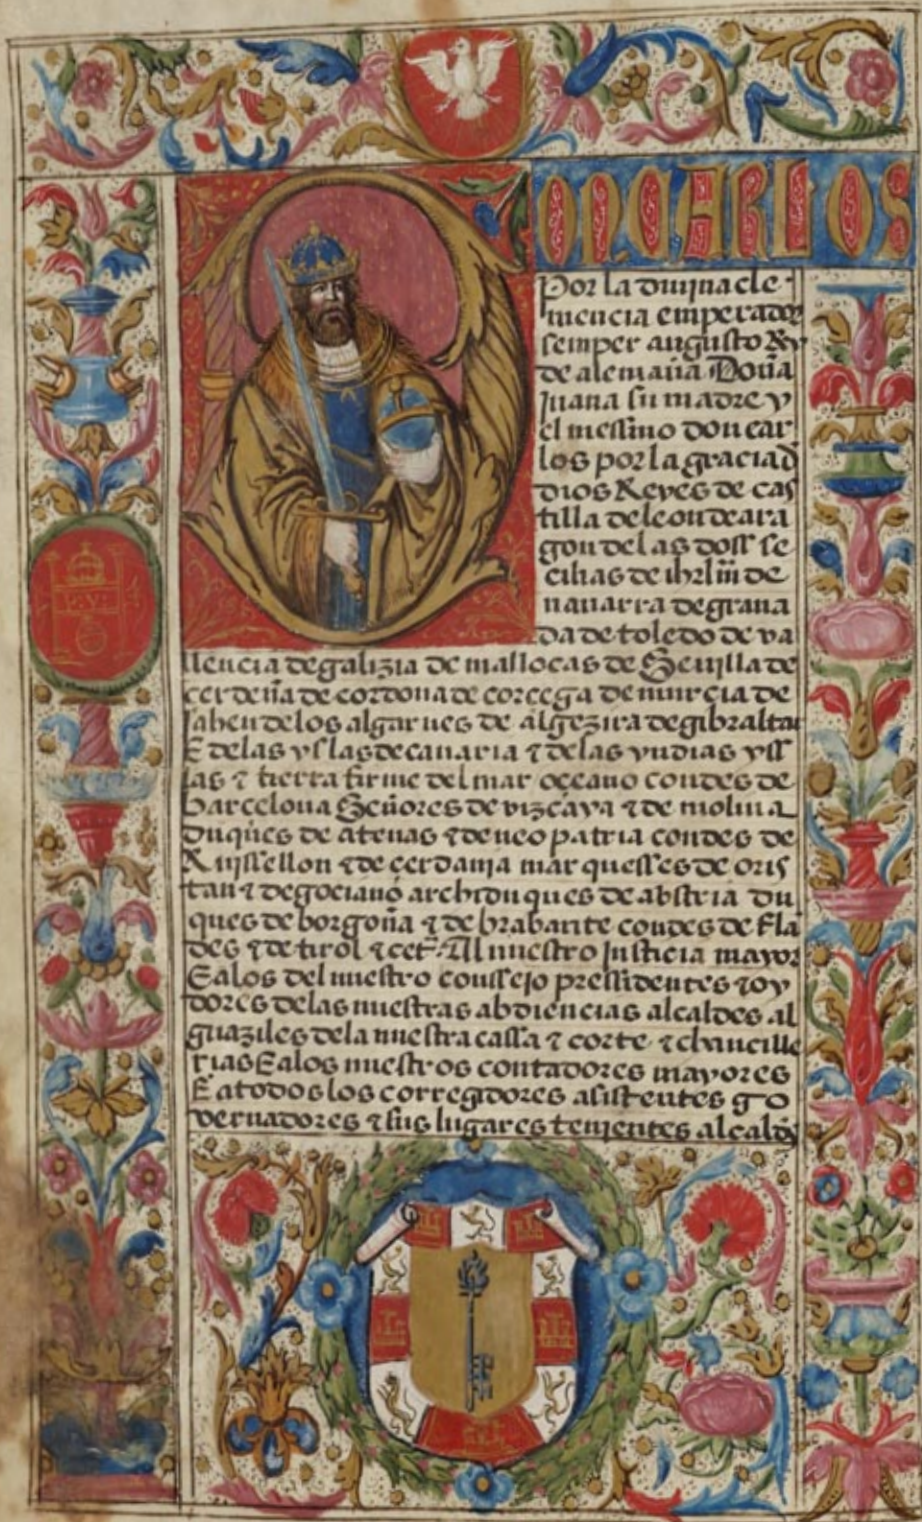 DON CARLOS
Por la diuina cle
mencia emperador
semper augusto Rey
de alemaña Doña
juana su madre y
el mesmo don car
los por la gracia d
dios Reyes de cas
tilla de leon de ara
gon de las doss se
cilias de ihrlm de
nauarra de grana
da de toledo de va
llencia de galizia de mallocas de Seuilla de
cerdeña de cordoua de corcega de murcia de
Jahen de los algarues de algezira de gibraltar
E de las yslas de canaria ⁊ de las yndias yss
las ⁊ tierra firme del mar oçeano condes de
barcelona Señores de vizcaya ⁊ de molina
duques de atenas ⁊ de neopatria condes de
Ruissellon ⁊ de çerdania marquesses de oris
tan ⁊ de goçiano archiduques de abstria du
ques de borgoña ⁊ de brabante condes de fla
des ⁊ de tirol ⁊ cet. Al nuestro justicia mayor
E a los del nuestro conssejo pressidentes ⁊ oy
dores de las nuestras abdiencias alcaldes al
guaziles de la nuestra cassa ⁊ corte ⁊ chancille
rias E a los nuestros contadores mayores
E a todos los corregidores asistentes go
vernadores ⁊ sus lugares tenientes alcaldes